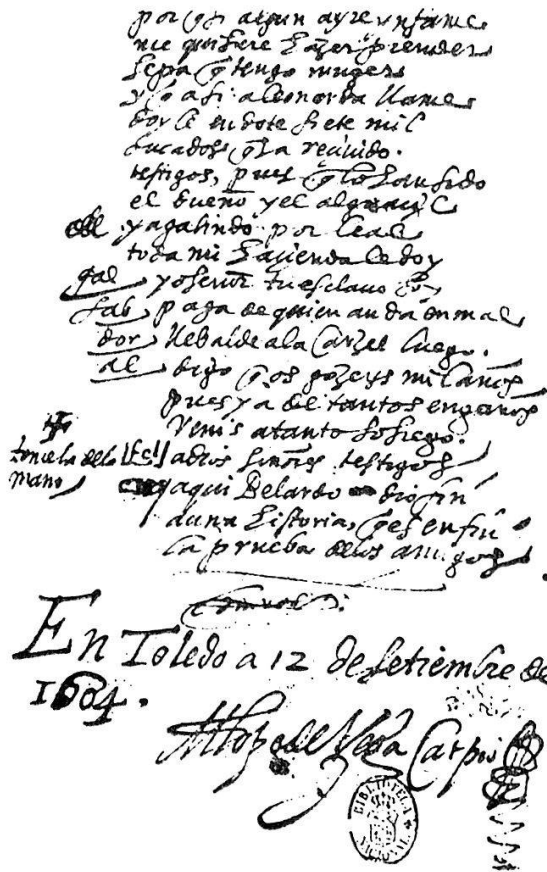 por q̃ si algun ayre infame
me quisiere hazer prender
sepa q̃ tengo muger
y q̃ a si a leonarda llame
dorle en dote siete mil
ducados q̃ ha reciuido.
testigos, pues q̃ lo han sido
el dueño y el alguaçil
y a galindo por leal
toda mi hazienda le doy
gal yo señor tu esclauo soy
fab paga de quien anda en mal
dor llebalde a la carzel luego.
al digo q̃ os gozeys mil años
pues ya de tantos engaños
venis a tanto sosiego.
adios señores testigos
aqui Belardo dio fin
a una historia, q̃ es en fin
la prueba de los amigos
En Toledo a 12 de setiembre de
1604.
Lope de Vega Carpio
BIBLIOTECA NACIONAL